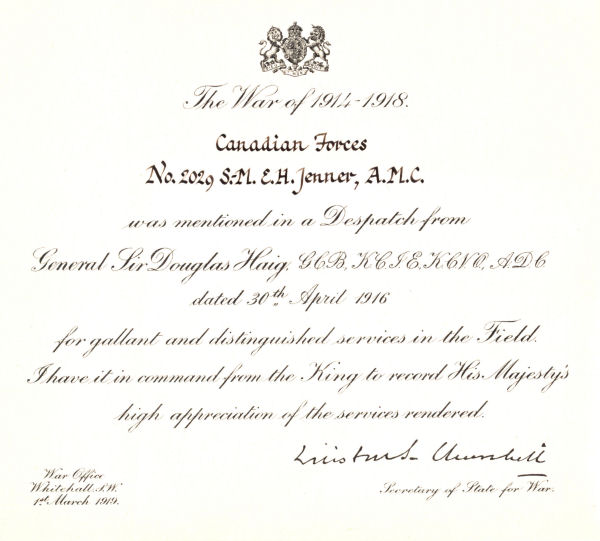 The War of 1914-1918.
Canadian Forces
No. 2029 S.-M. E.H. Jenner, A.M.C.
was mentioned in a Despatch from
General Sir Douglas Haig, G.C.B., K.C.I.E., K.C.V.O., A.D.C
dated 30th April 1916
for gallant and distinguished services in the Field.
I have it in command from the King to record His Majesty's
high appreciation of the services rendered.
Winston S. Churchill
War Office
Whitehall, S.W.
1st March 1919.
Secretary of State for War.